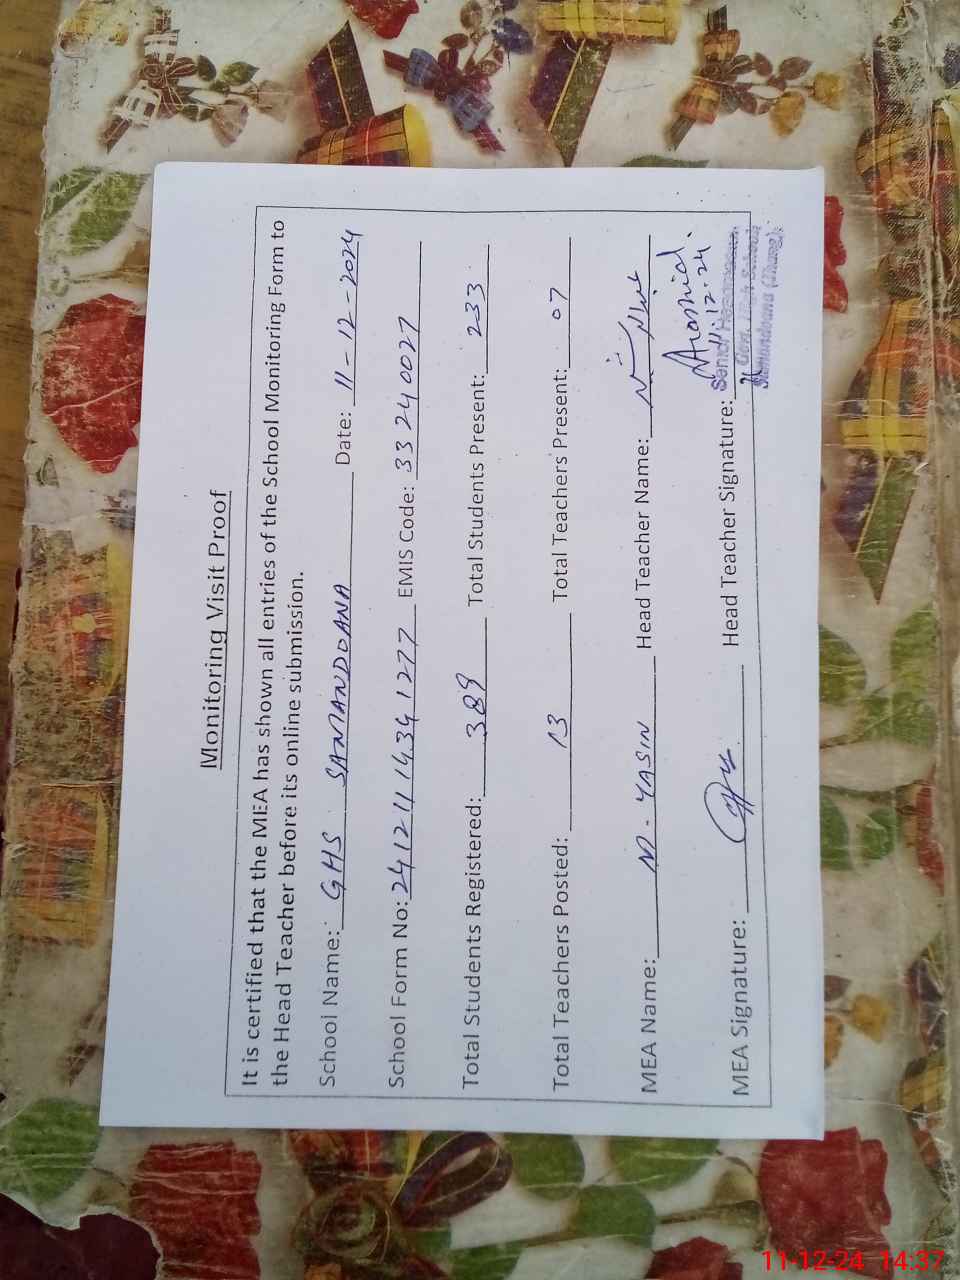 Monitoring Visit Proof
It is certified that the MEA has shown all entries of the School Monitoring Form to
the Head Teacher before its online submission.
School Name: GHS SAMANDOANA Date: 11-12-2024
School Form No: 24121114341277 EMIS Code: 33240027
Total Students Registered: 389 Total Students Present: 233
Total Teachers Posted: 13 Total Teachers Present: 07
MEA Name: M. YASIN Head Teacher Name:
MEA Signature: Head Teacher Signature:
11.12.24
Senior Headmaster
Gov. High School
Samandoana (Jhang)
11-12-24 14:37